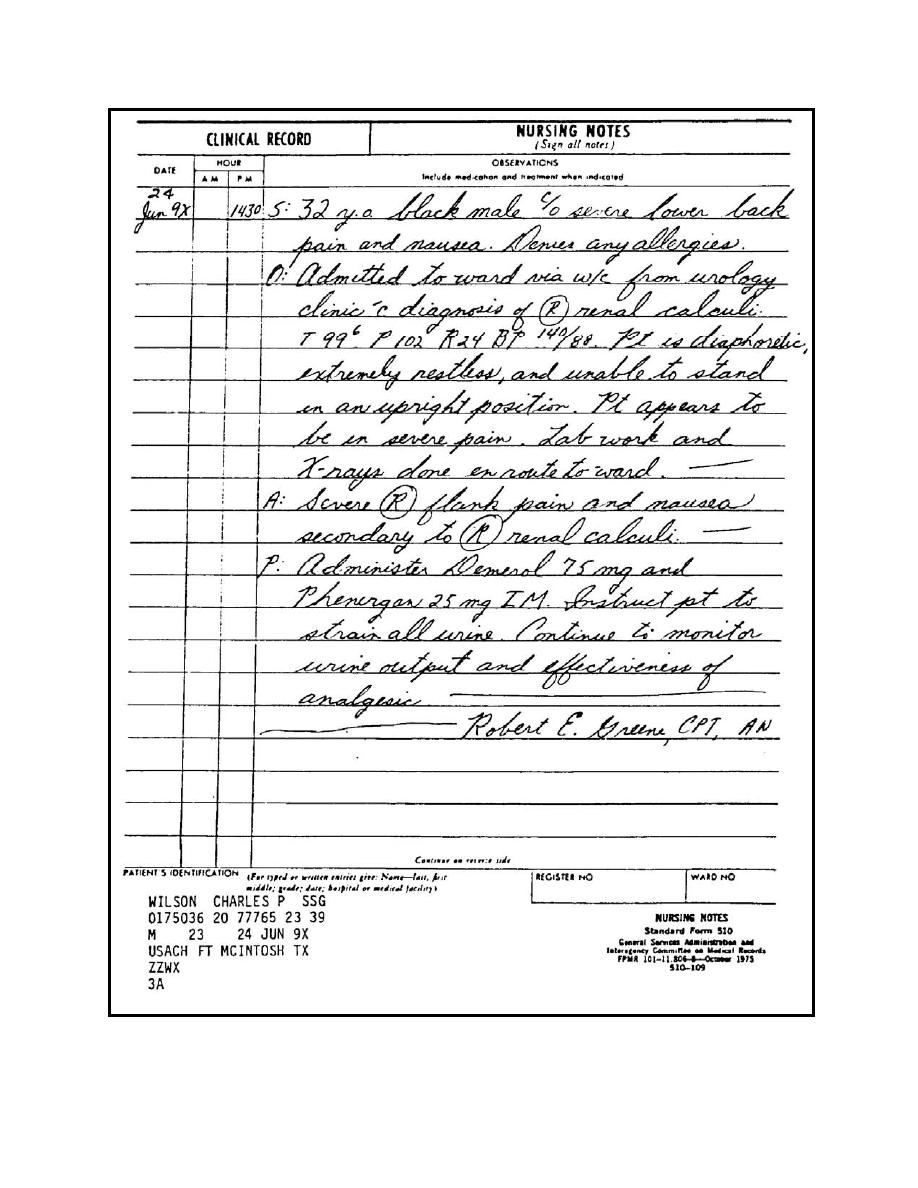 CLINICAL RECORD
NURSING NOTES
(Sign all notes)
DATE
HOUR
A M
P M
OBSERVATIONS
Include medication and treatment when indicated
24
Jun 9X 1430 S: 32 y.o. black male c/o severe lower back
pain and nausea. Denies any allergies.
O: Admitted to ward via w/c from urology
clinic c̄ diagnosis of Ⓡ renal calculi.
T 99⁶ P 102 R 24 BP 140/88. Pt is diaphoretic,
extremely restless, and unable to stand
in an upright position. Pt appears to
be in severe pain. Lab work and
X-rays done en route to ward.
A: Severe Ⓡ flank pain and nausea
secondary to Ⓡ renal calculi.
P: Administer Demerol 75 mg and
Phenergan 25 mg IM. Instruct pt to
strain all urine. Continue to monitor
urine output and effectiveness of
analgesic
Robert E. Greene, CPT, AN
Continue on reverse side
PATIENT'S IDENTIFICATION (For typed or written entries give: Name—last, first
middle; grade; date; hospital or medical facility)
REGISTER NO
WARD NO
WILSON CHARLES P SSG
0175036 20 77765 23 39
M 23 24 JUN 9X
USACH FT MCINTOSH TX
ZZWX
3A
NURSING NOTES
Standard Form 510
General Services Administration and
Interagency Committee on Medical Records
FPMR 101-11.806-8—October 1975
510-109